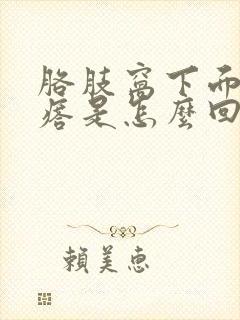 胳肢窩下而
痞是怎麼回
賴美惠